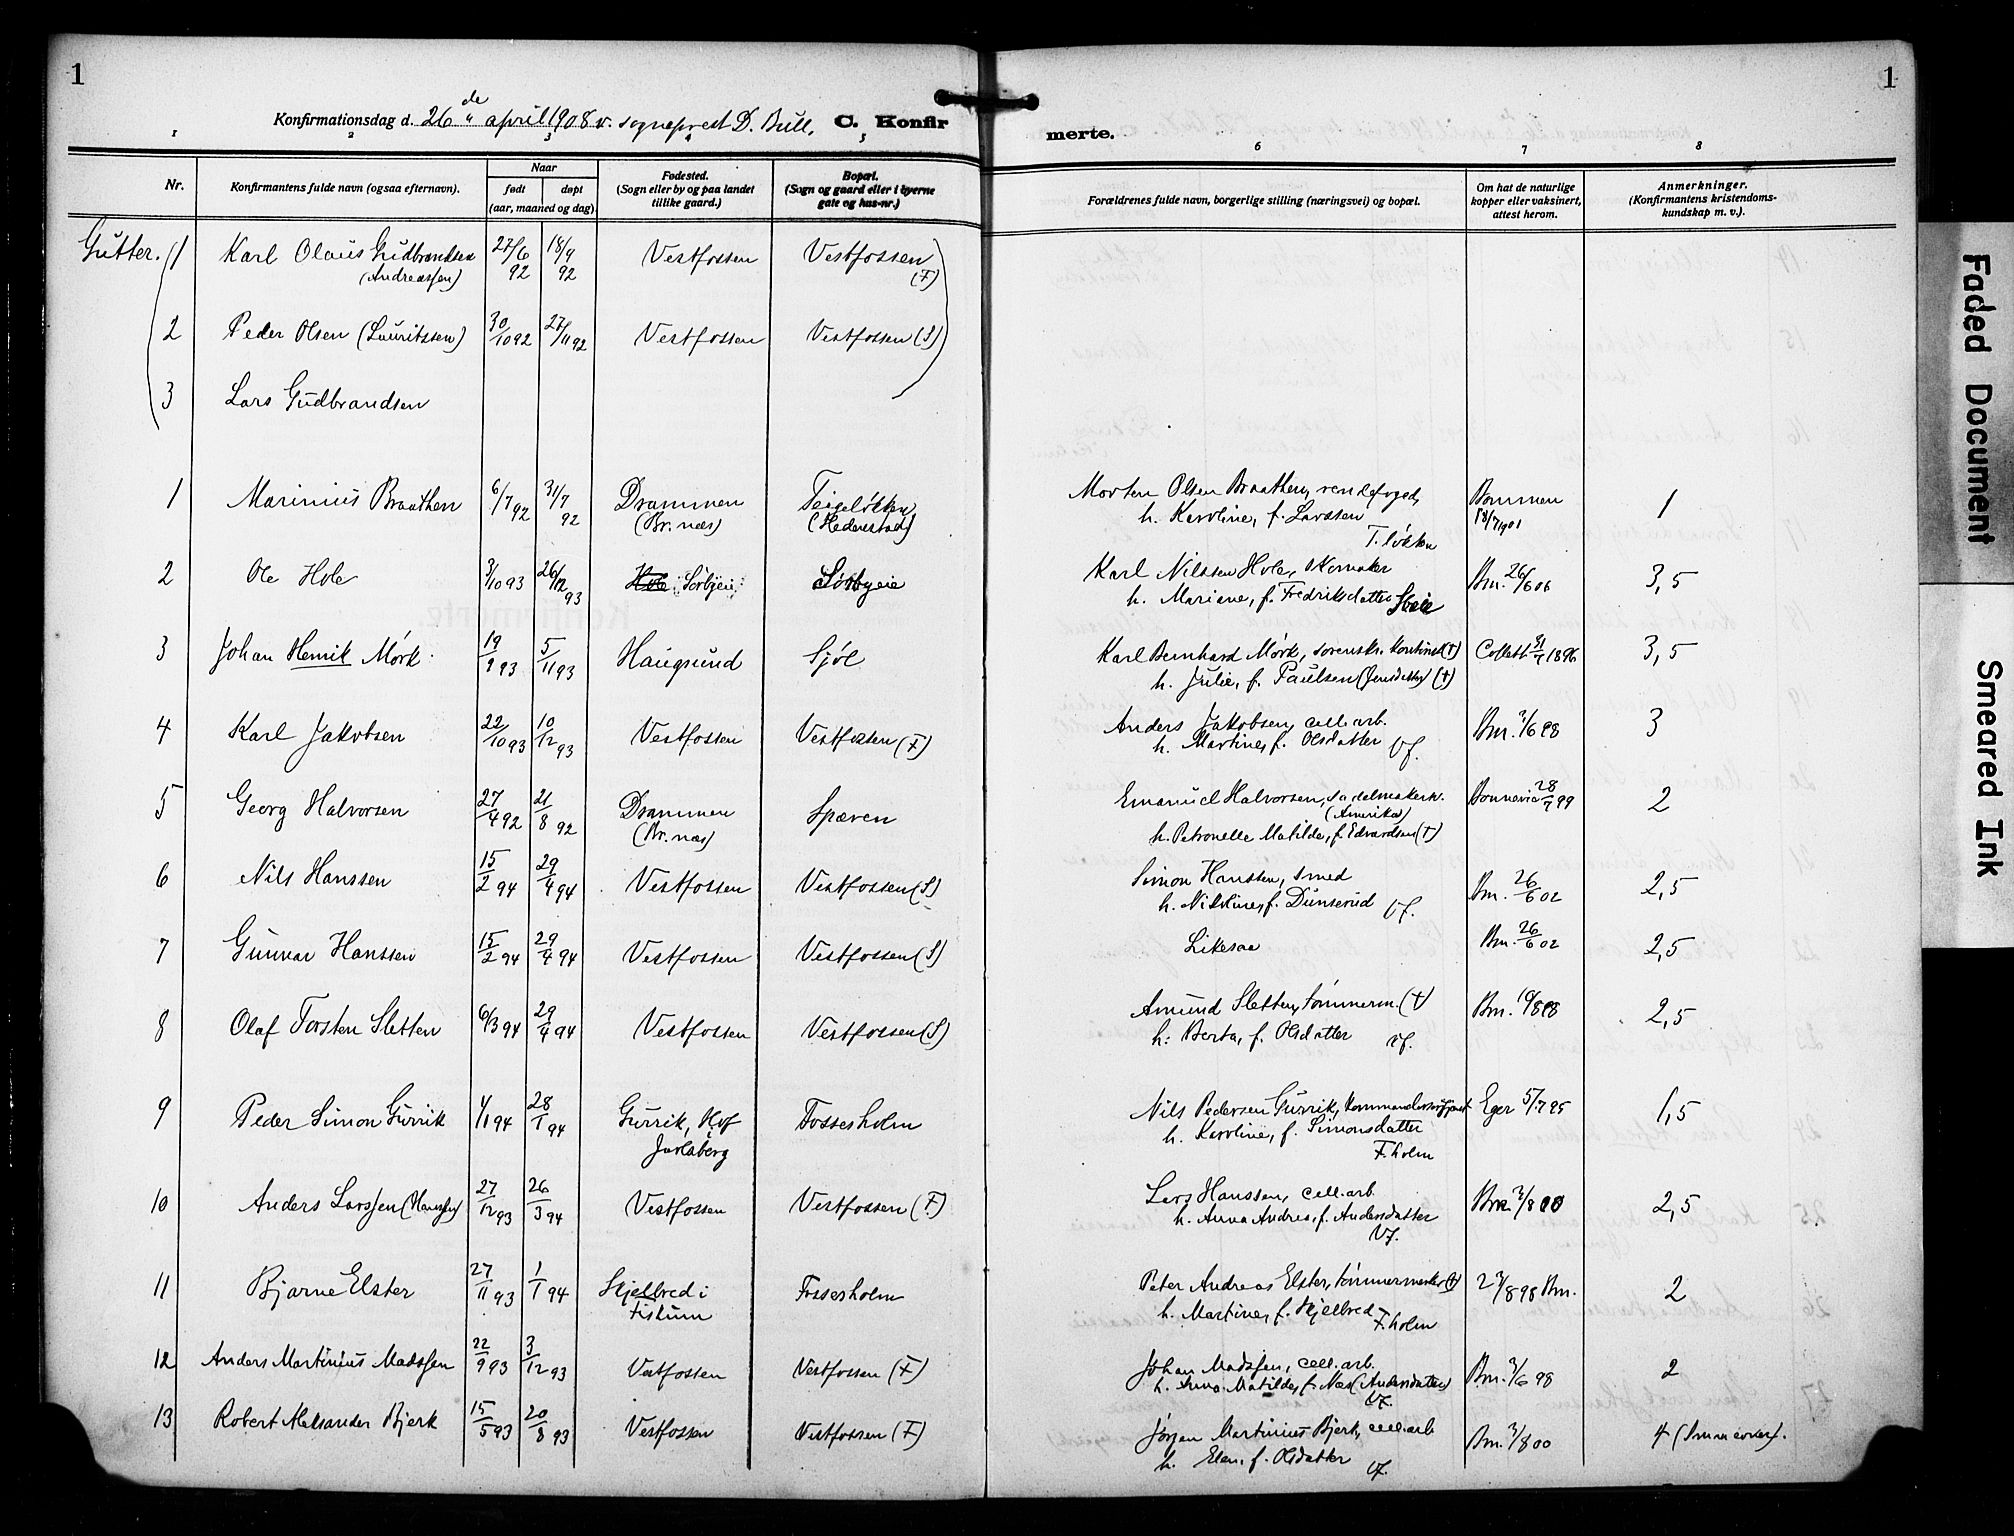 1
1
Konfirmationsdag d. 26de april 1908 v. sogneprest D. Bull. C. Konfir merte.
1 2 3 4 5 6 7 8
Nr.
Konfirmantens fulde navn (ogsaa efternavn).
Naar
født døpt
(aar, maaned og dag)
Fødested.
(Sogn eller by og paa landet
tillike gaard.)
Bopæl.
(Sogn og gaard eller i byerne
gate og hus-nr.)
Forældrenes fulde navn, borgerlige stilling (næringsvei) og bopæl.
Om hat de naturlige
kopper eller vaksinert,
attest herom.
Anmerkninger.
(Konfirmantens kristendoms-
kundskap m. v.).
Gutter. 1 Karl Olaus Gudbrandsen 27/6 92 18/9 92 Vestfossen Vestfossen
(Andreassen) (F)
2 Peder Olsen (Lauritssen) 30/10 92 27/11 92 Vestfossen Vestfossen (S)
3 Lars Gudbrandsen
1 Marinius Braathen 6/7 92 31/7 92 Drammen Teigeløkken Morten Olsen Braathen, 1
(Br.næs) (Hedenstad) h. Karoline, f. Larssen 18/7 1901
T. løkken
2 Ole Hole 3/10 93 26/12 93 Hole Sørbyeie Sørbyeie Karl Nilssen Hole, skomaker Bm. 26/6 06 3,5
h. Mariane, f. Fredriksdatter
3 Johan Henrik Mørk. 19/9 93 5/11 93 Haugsund Sjøl Karl Bernhard Mørk, sorenskr. (†) Collett 1896 3,5
h. Julie, f. Paulsen (Jensdatter) (†)
4 Karl Jakobsen 22/10 93 10/12 93 Vestfossen Vestfossen (F) Anders Jakobsen, cell. arb. Bm. 3
h. Martine, f. Olsdatter Vf.
5 Georg Halvorsen 27/4 92 21/8 92 Drammen Spæren Emanuel Halvorsen, sadelmakersv. Bonnevie 2
(Br.næs) (Amerika)
h. Petronelle Matilde, f. Edvardsen (†)
6 Nils Hanssen 15/2 94 29/4 94 Vestfossen Vestfossen (S) Simon Hanssen, smed Bm. 26/6 02 2,5
h. Nikoline, f. Dunserud Vf.
7 Gunnar Hanssen 15/2 94 29/4 94 Vestfossen Vestfossen (S) Likesaa Bm. 26/6 02 2,5
8 Olaf Torsten Sletten 6/3 94 29/4 94 Vestfossen Vestfossen (S) Amund Sletten, tømmerm. (†) Bm. 2,5
h: Berta, f. Olsdatter Vf.
9 Peder Simon Gurrik 1/1 94 28/1 94 Gurrik, Hof Fossesholm Nils Pedersen Gurrik, Eger 5/7 95 1,5
Jarlsberg h. Karoline, f. Simonsdatter
F.holm
10 Anders Larssen (Hanssen) 27/12 93 26/3 94 Vestfossen Vestfossen (F) Lars Hanssen, cell. arb. Bm. 3/8 00 2,5
h. Anna Andrea, f. Andersdatter
Vf.
11 Bjarne Elster 27/11 93 1/1 94 Skjelbred i Fossesholm Peter Andreas Elster, tømmermerker (†) 2
Fiskum h. Martine, f. Skjelbred F.holm
12 Anders Martinius Madssen 22/9 93 3/12 93 Vestfossen Vestfossen (F) Johan Madssen, cell. arb. Bm. 3/6 98 2
h. Anna Matilde, f. Næs (Andersdatter)
Vf.
13 Robert Aleksander Bjerk 15/5 93 20/8 93 Vestfossen Vestfossen (F) Jørgen Martinius Bjerk, cell. arb Bm. 3/8 00 4
h. Elen, f. Olsdatter Vf.
Faded Document
Smeared Ink